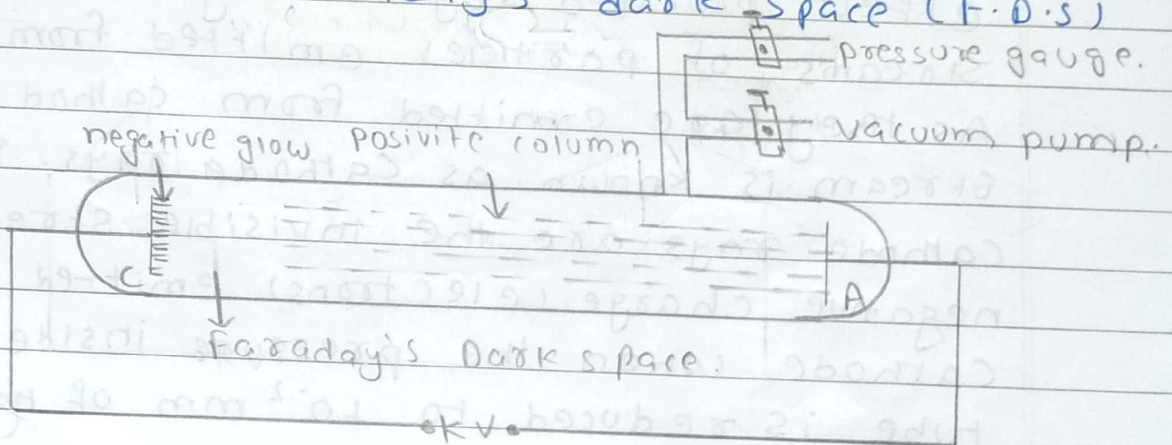 dark space (F.D.s)
pressure gauge.
vacuum pump.
negative glow posivite column
C
A
Faraday's Dark space.
KV